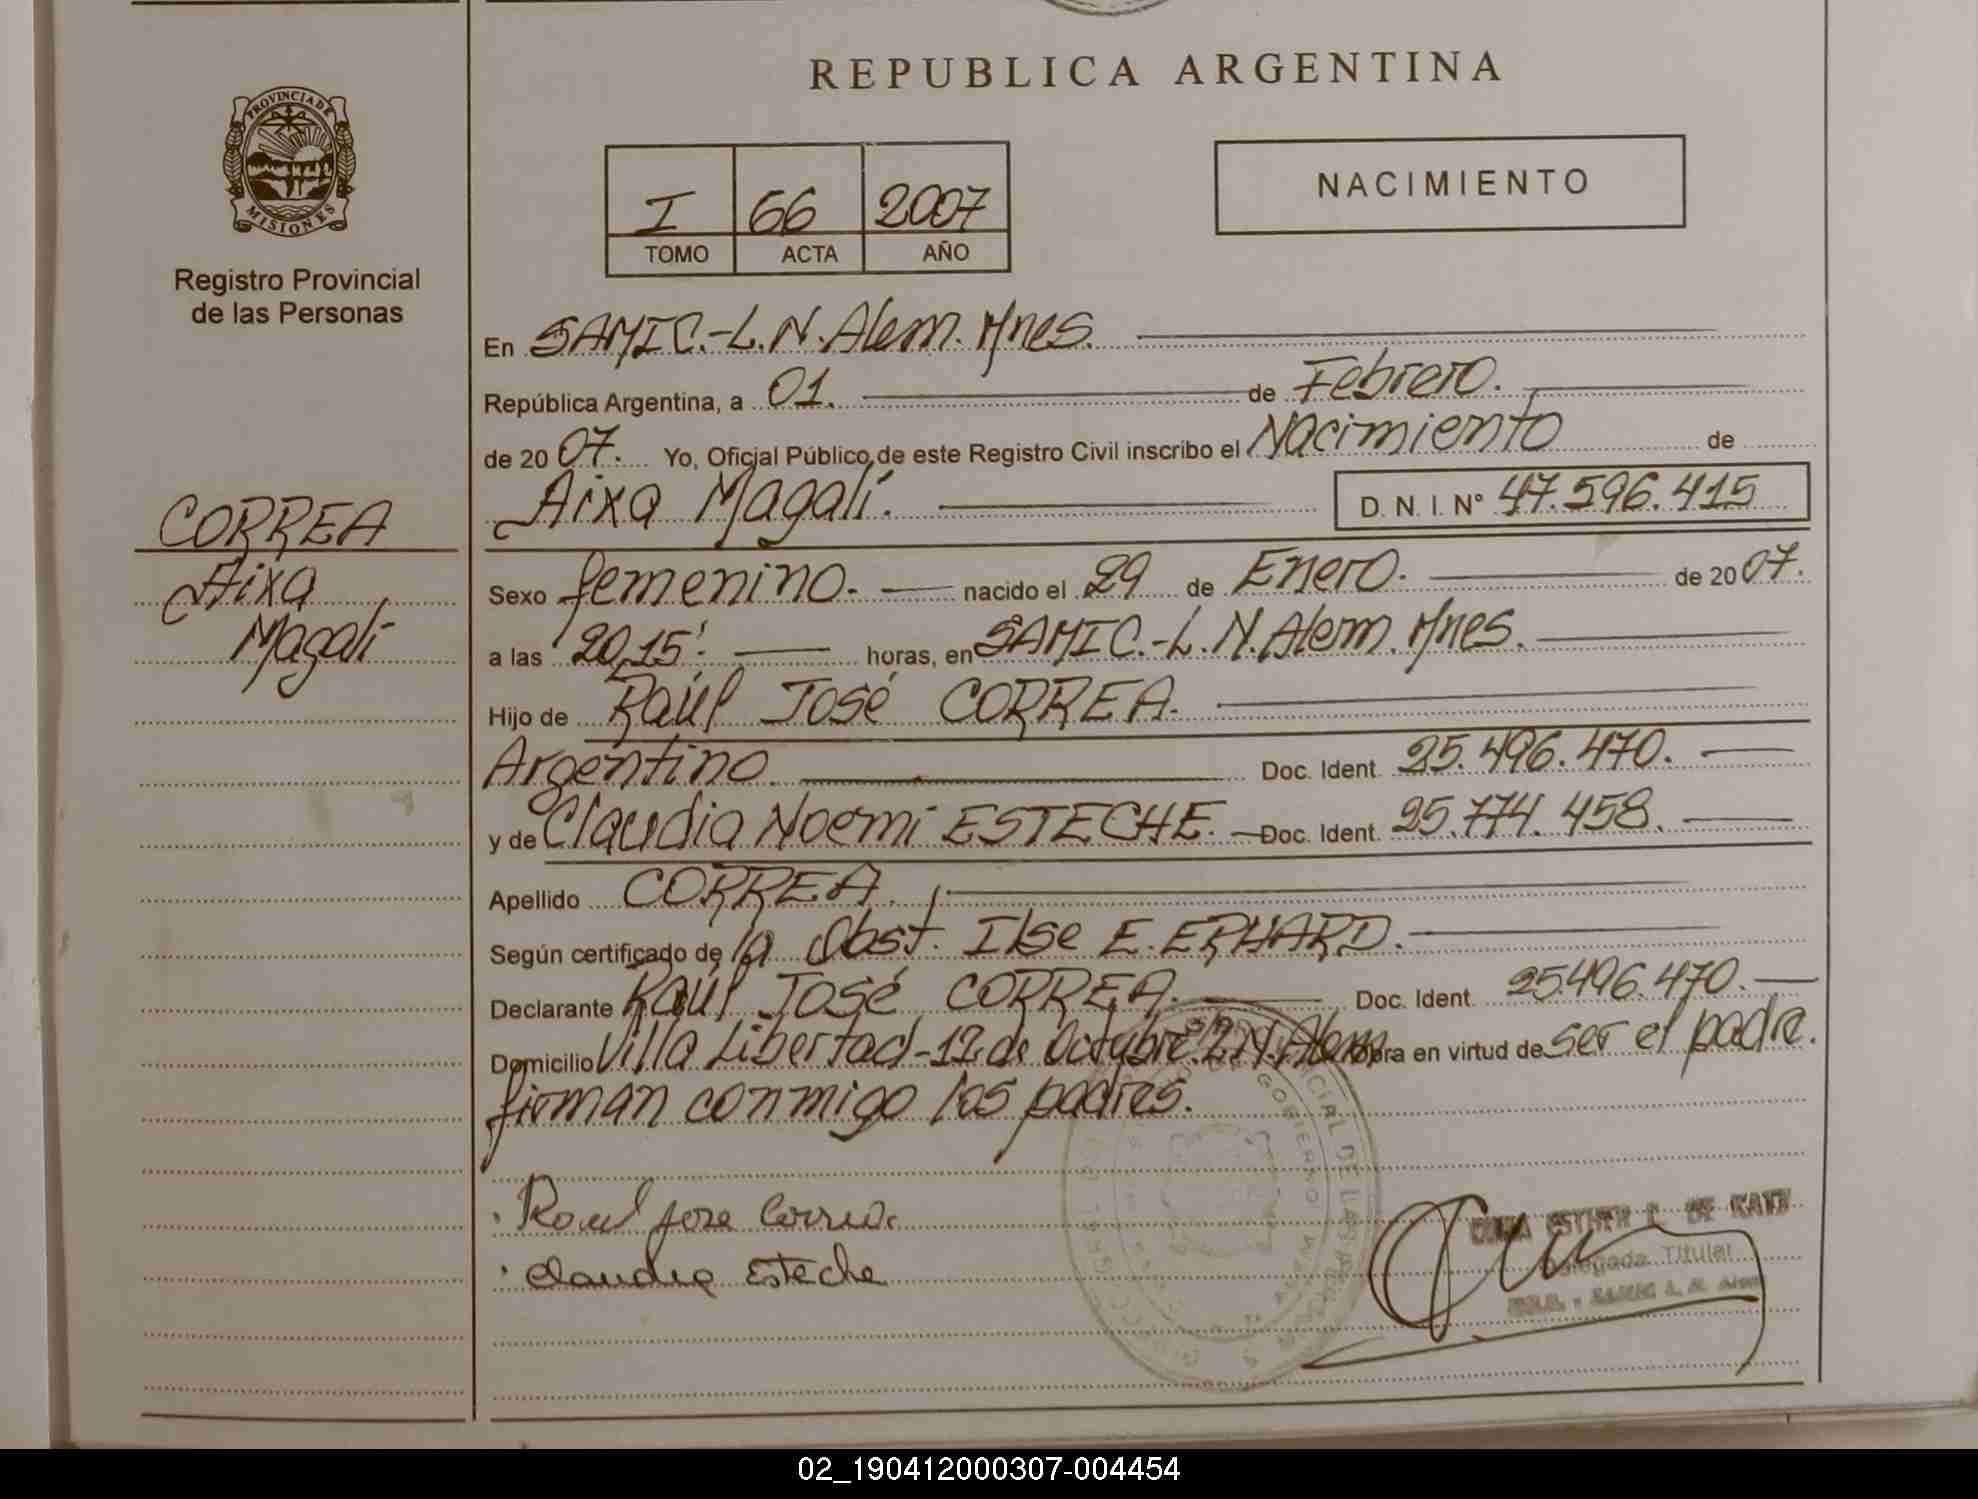 REPUBLICA ARGENTINA
PROVINCIA DE
MISIONES
Registro Provincial
de las Personas
I 66 2007
TOMO ACTA AÑO
NACIMIENTO
CORREA
Aixa
Magalí
En SAMIC.-L.N.Alem.Mnes.
República Argentina, a 01. de Febrero.
de 2007. Yo, Oficial Público de este Registro Civil inscribo el Nacimiento de
Aixa Magalí. D. N. I. Nº 47.596.415
Sexo femenino. nacido el 29 de Enero. de 2007.
a las 20,15'. horas, en SAMIC.-L.N.Alem.Mnes.
Hijo de Raúl José CORREA.
Argentino. Doc. Ident. 25.496.470.
y de Claudia Noemi ESTECHE. Doc. Ident. 25.774.458.
Apellido CORREA.
Según certificado de la Obst. Ilse E. ERHARD.
Declarante Raúl José CORREA. Doc. Ident. 25.496.470.
Domicilio Villa Libertad-12 de Octubre s/n. L.N.Alem Obra en virtud de ser el padre.
firman conmigo los padres.
Raul Jose Correa
Claudia Esteche
ESTHER
Delegada Titular
02_190412000307-004454